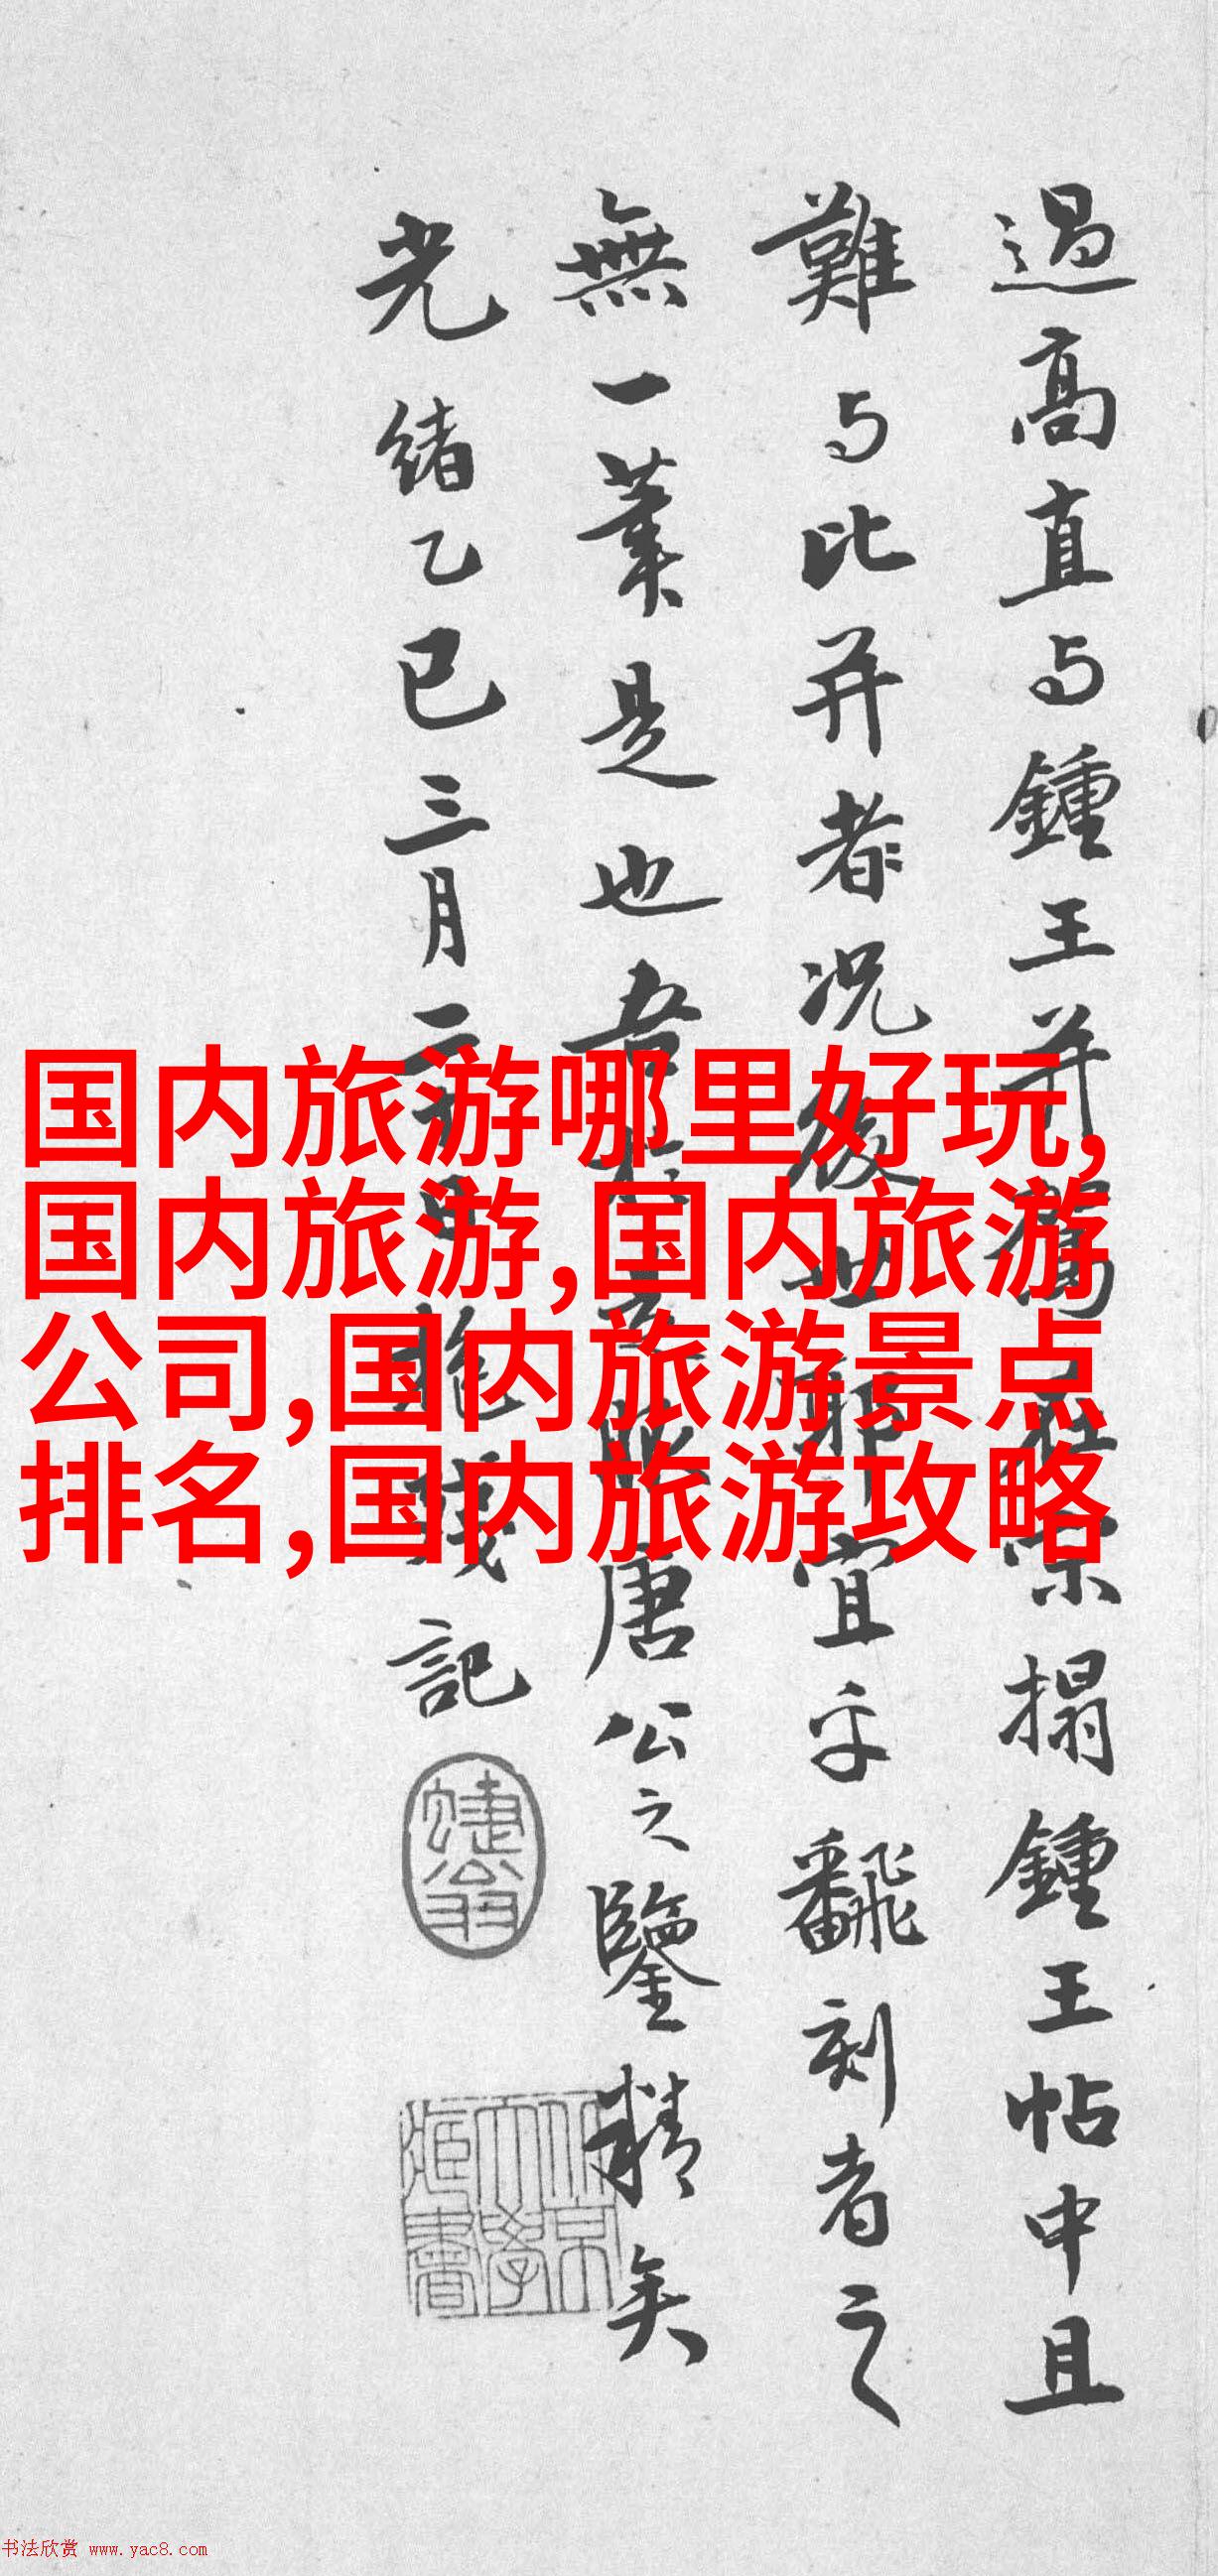 過高直与鍾王并
搨鍾王帖中且
難与比并者况後世
宜乎飜刻者之
無一筆是也吾
唐公之鑒精矣
光緒乙巳三月二
記
国内旅游哪里好玩,
国内旅游,国内旅游
公司,国内旅游景点
排名,国内旅游攻略
书法欣赏 www.yac8.com